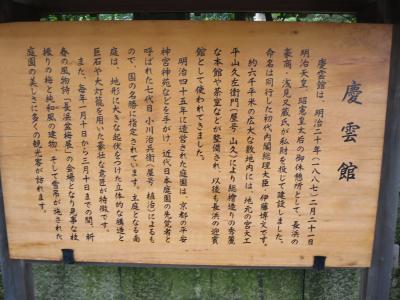 慶雲館
慶雲館は、明治二十年(一八八七)二月二十一日
明治天皇、昭憲皇太后の御休憩所として、長浜の
豪商・浅見又蔵氏が私財を投じて建設しました。
命名は同行した初代内閣総理大臣・伊藤博文です。
約六千平米の広大な敷地には、地元の宮大工
平山久左衛門(屋号 山久)により総檜造りの秀麗
な本館や茶室などが整備され、以後も長浜の迎賓
館として使われてきました。
明治四十五年に造営された庭園は、京都の平安
神宮神苑などを手がけ、近代日本庭園の先覚者と
呼ばれた七代目・小川治兵衛(屋号 植治)によるも
ので、国の名勝に指定されています。主庭となる南
庭は、地形に大きな起伏をつけた立体的な構造と
巨石や大灯籠を用いた豪壮な意匠が特徴です。
また、毎年一月十日から三月十日までの間、新
春の風物詩「長浜盆梅展」の会場となり見事な枝
振りの梅と純和風の建物、そして雪吊が施された
庭園の美しさに多くの観光客が訪れます。